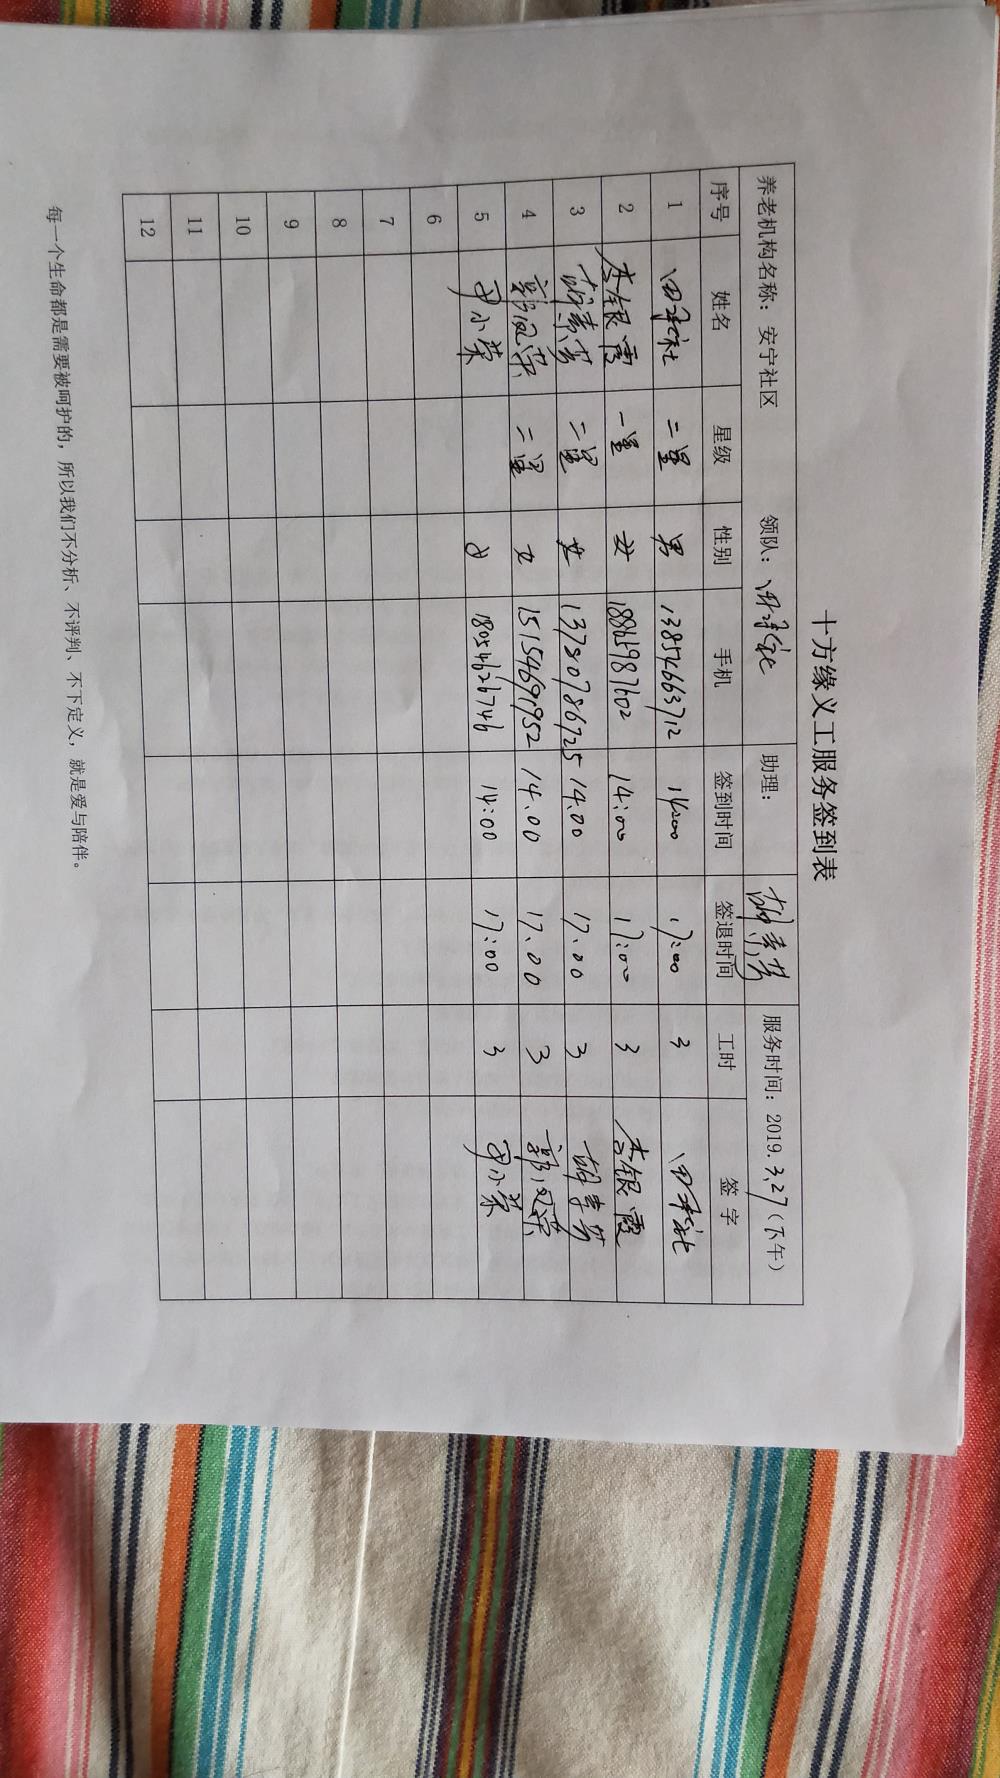 十方缘义工服务签到表
养老机构名称：安宁社区 领队： 助理：胡素芳 服务时间：2019.3.27（下午）
序号 姓名 星级 性别 手机 签到时间 签退时间 工时 签字
1 二星 男 13854663712 14:00 17:00 3
2 李银霞 一星 女 18865987602 14:00 17:00 3 李银霞
3 胡素芳 二星 女 13780786725 14.00 17.00 3 胡素芳
4 郭凤荣 二星 女 15154691952 14.00 17.00 3 郭凤荣
5 尹小荣 女 18054626746 14:00 17:00 3 尹小荣
6
7
8
9
10
11
12
每一个生命都是需要被呵护的，所以我们不分析、不评判、不下定义，就是爱与陪伴。